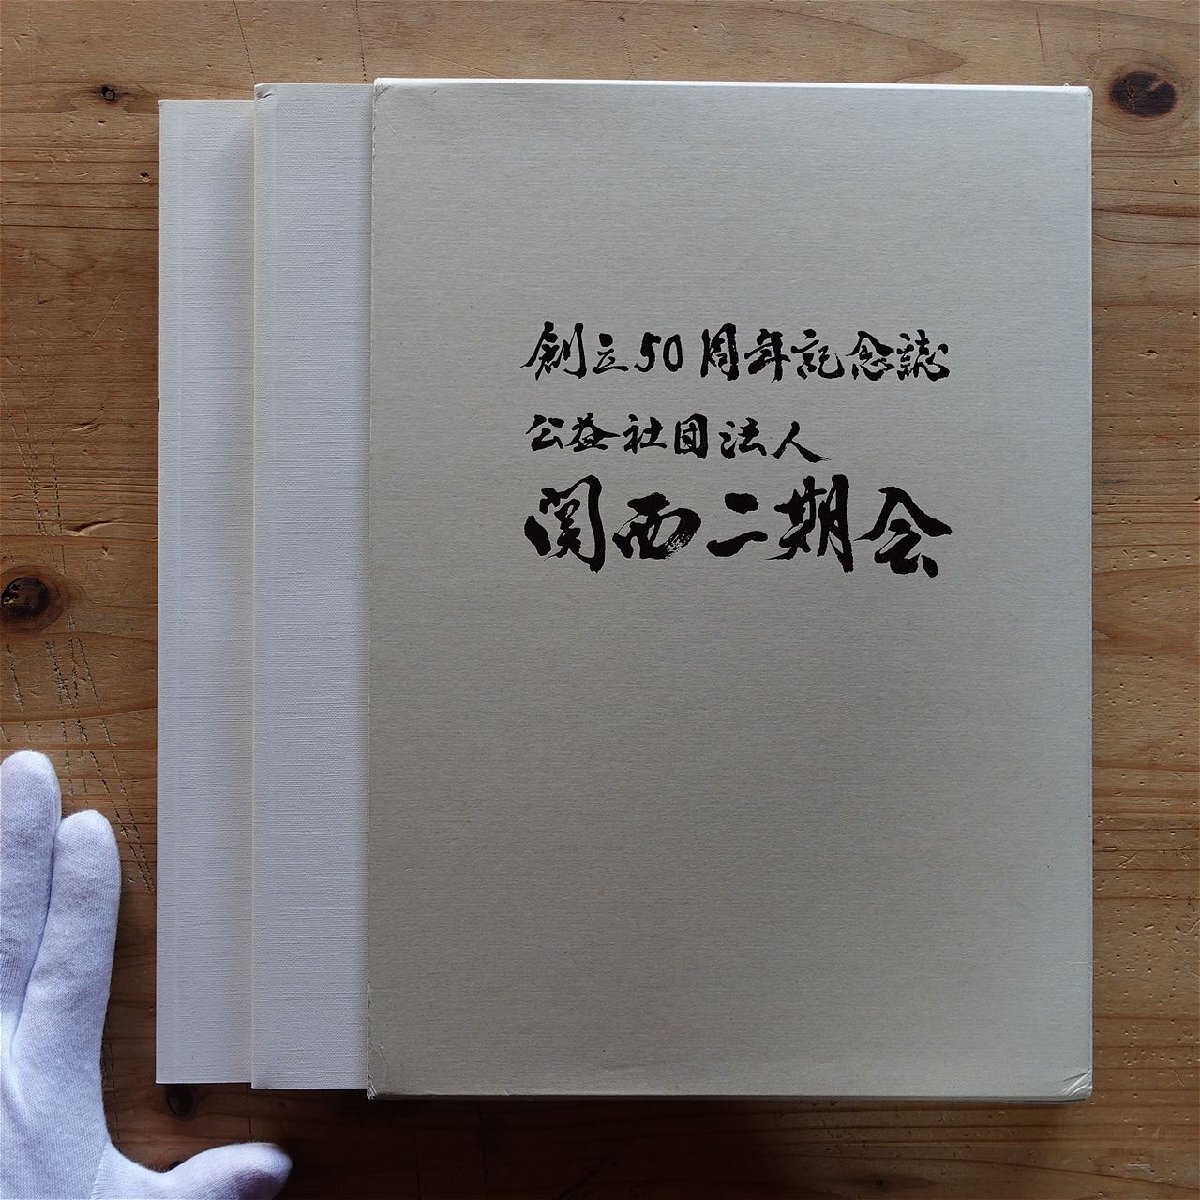 創立50周年記念誌
公益社団法人
関西二期会